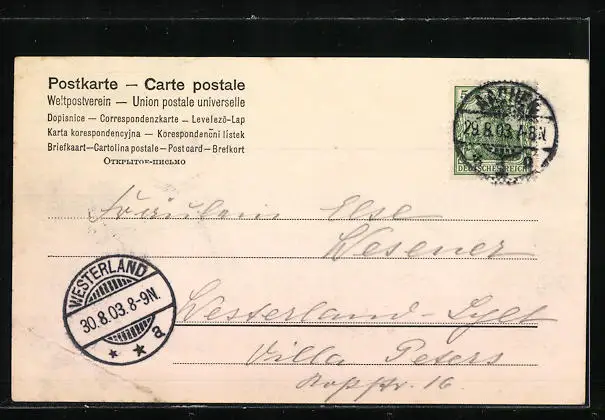 Postkarte — Carte postale
Weltpostverein — Union postale universelle
Dopisnice — Correspondenzkarte — Levelező-Lap
Karta korespondencyjna — Korespondenční lístek
Briefkaart—Cartolina postale—Postcard—Brefkort
Открытое-письмо
5
29.8.03.
DEUTSCHES REICH
Fräulein Else
Wesener
WESTERLAND
30.8.03.8-9N.
* * a
Westerland-Sylt
Villa Peters
16.